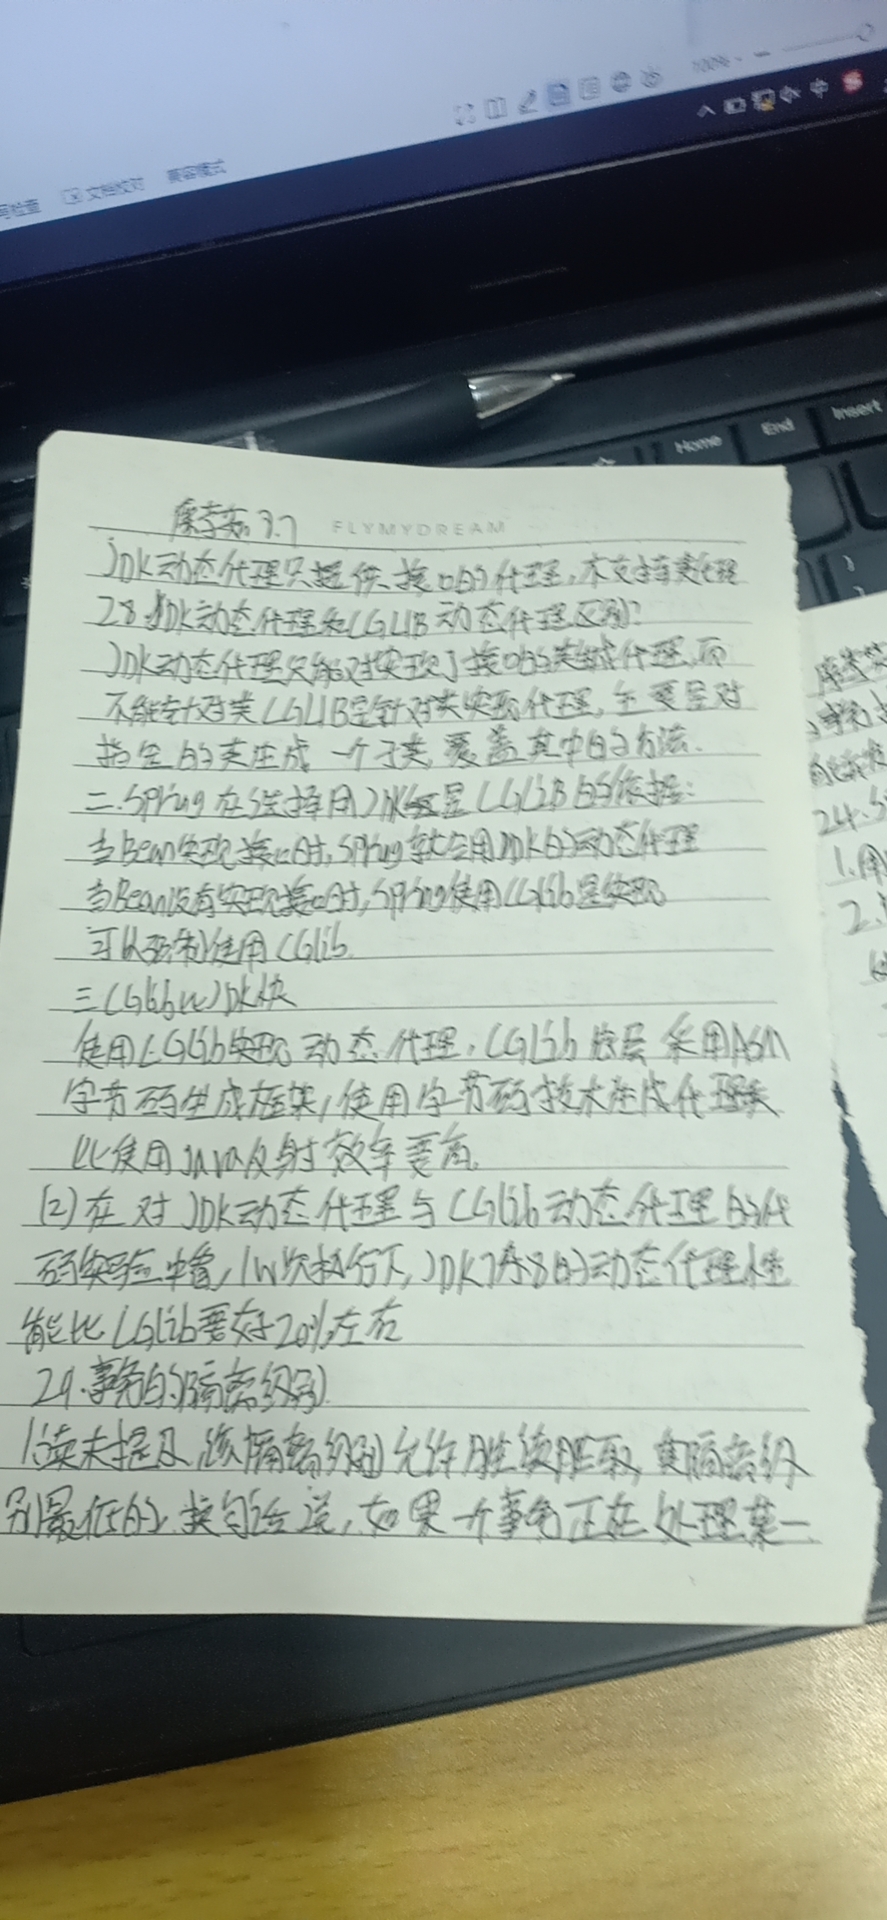 100%
文档校对
兼容模式
Home
End
Insert
3.7
FLYMYDREAM
JDK动态代理只提供接口的代理,不支持类代理
28.JDK动态代理和CGLIB动态代理区别?
JDK动态代理只能对实现了接口的类生成代理,而
不能针对类CGLIB是针对类实现代理,主要是对
指定的类生成一个子类,覆盖其中的方法.
二.Spring在选择用JDK还是CGLiB的依据:
当Bean实现接口时,Spring就会用JDK的动态代理
当Bean没有实现接口时,Spring使用CGlib是实现
可以强制使用CGlib.
三CGlib比JDK快
使用CGLib实现动态代理,CGLib底层采用ASM
字节码生成框架,使用字节码技术生成代理类
比使用Java反射效率要高.
(2)在对JDK动态代理与CGlib动态代理的代
码实验中看,1W次执行下,JDK7和8的动态代理性
能比CGlib要好20%左右
29.事务的隔离级别
1.读未提及,该隔离级别允许脏读脏取,其隔离级
别最低的.换句话说,如果一个事务正在处理某一
24.
1.用
2.